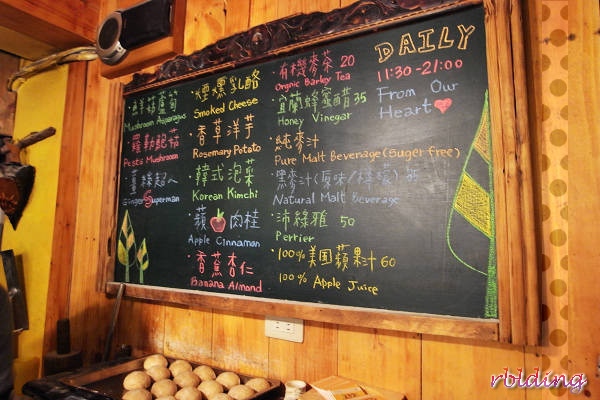 鮮菇蘆筍
Mushroom Asparagus
Pesto Mushroom
Ginger Superman
煙燻乳酪
Smoked Cheese
香草洋芋
Rosemary Potato
韓式泡菜
Korean Kimchi
蘋 肉桂
Apple Cinnaman
香蕉杏仁
Banana Almond
有機麥茶 20
Orgnic Barley Tea
宜蘭蜂蜜醋 35
Honey Vinegar
純麥汁
Pure Malt Beverage (suger free)
黑麥汁(原味/檸檬) 35
Natural Malt Beverage
沛綠雅 50
Perrier
100% 美国蘋果汁 60
100% Apple Juice
DAILY
11:30-21:00
From Our
Heart
rblding